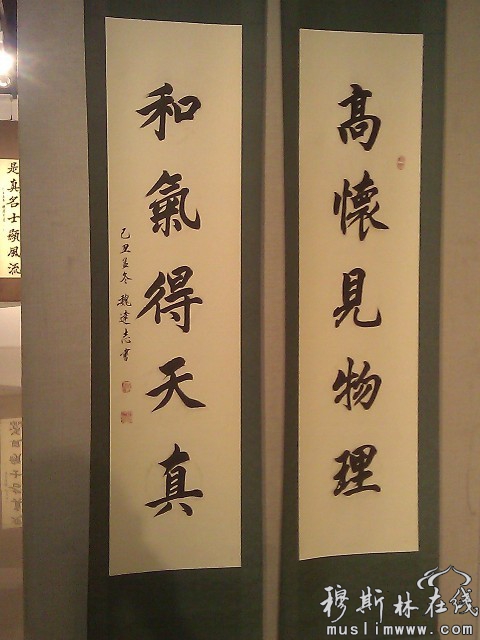 高懷見物理
和氣得天真
乙丑孟冬 魏達志書
是真名士顯風流
穆斯林在线
muslimwww.com